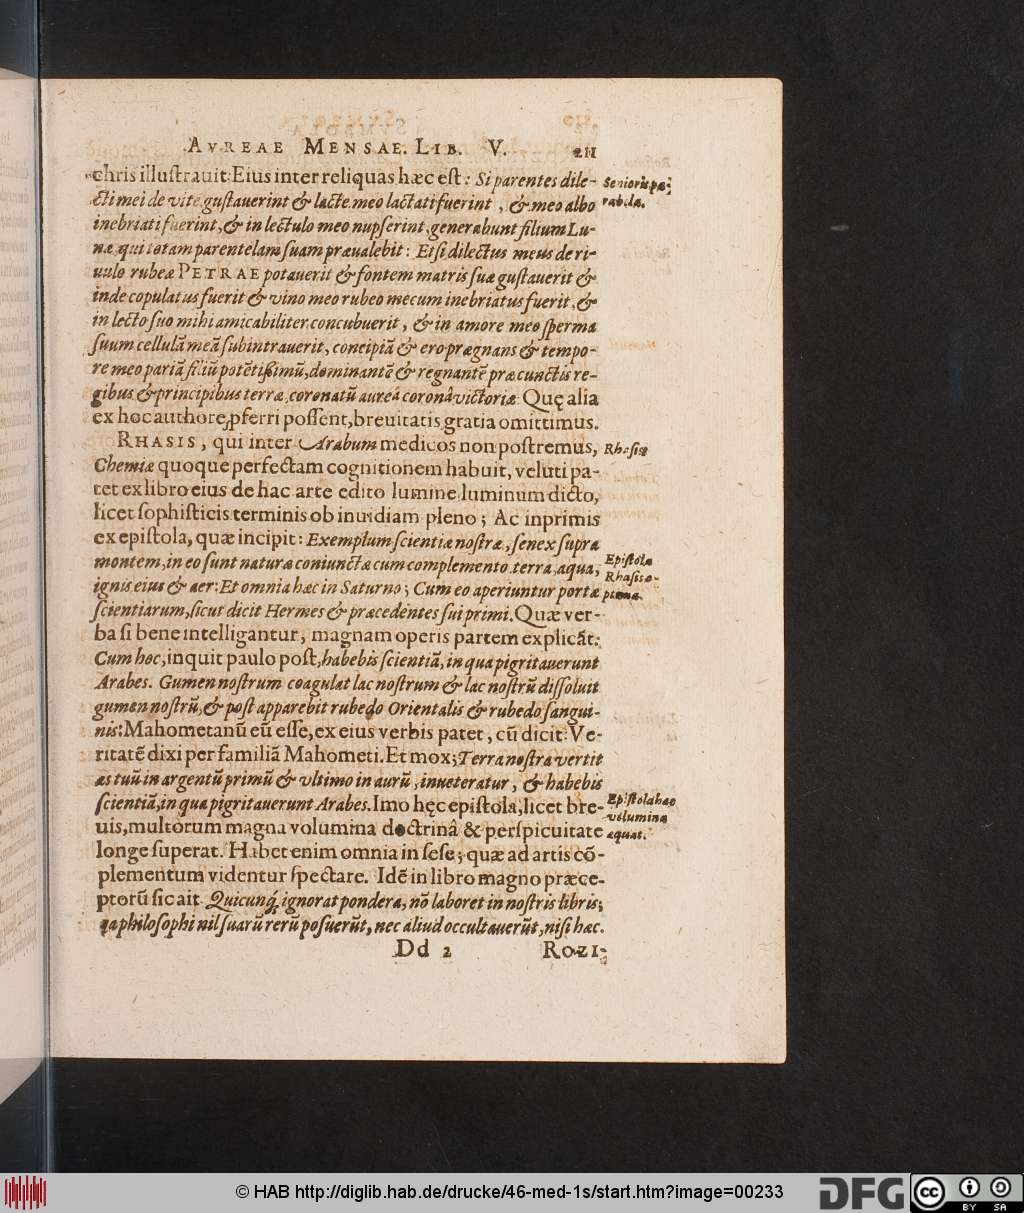 AVREAE MENSAE. LIB. V. 211
chris illuſtrauit. Eius inter reliquas hæc eſt: Si parentes dile-
cti mei de vite guſtauerint & lacte meo lactati fuerint, & meo albo
inebriati fuerint, & in lectulo meo nupſerint, generabunt filium Lu-
næ, qui totam parentelam ſuam præualebit: Et ſi dilectus meus de ri-
uulo rubeæ PETRAE potauerit & fontem matris ſuæ guſtauerit &
inde copulatus fuerit & vino meo rubeo mecum inebriatus fuerit, &
in lecto ſuo mihi amicabiliter concubuerit, & in amore meo ſperma
ſuum cellulā meā ſubintrauerit, concipiā & ero prægnans & tempo-
re meo pariā filiū potētiſſimū, dominantē & regnantē præ cunctis re-
gibus & principibus terræ, coronatū aureâ coronâ victoriæ Quę alia
ex hoc authore ꝓferri poſſent, breuitatis gratia omittimus.
RHASIS, qui inter Arabum medicos non poſtremus,
Chemiæ quoque perfectam cognitionem habuit, veluti pa-
tet ex libro eius de hac arte edito lumine luminum dicto,
licet ſophiſticis terminis ob inuidiam pleno; Ac inprimis
ex epiſtola, quæ incipit: Exemplum ſcientiæ noſtræ, ſenex ſupra
montem, in eo ſunt naturæ coniunctæ cum complemento terra, aqua,
ignis eius & aer: Et omnia hæc in Saturno; Cum eo aperiuntur portæ
ſcientiarum, ſicut dicit Hermes & præcedentes ſui primi. Quæ ver-
ba ſi bene intelligantur, magnam operis partem explicāt:
Cum hoc, inquit paulo poſt, habebis ſcientiā, in qua pigritauerunt
Arabes. Gumen noſtrum coagulat lac noſtrum & lac noſtrū diſſoluit
gumen noſtrū, & poſt apparebit rubedo Orientalis & rubedo ſangui-
nis: Mahometanū eū eſſe, ex eius verbis patet, cū dicit: Ve-
ritatē dixi per familiā Mahometi. Et mox; Terra noſtra vertit
æs tuū in argentū primū & vltimo in aurū, inueteratur, & habebis
ſcientiā, in qua pigritauerunt Arabes. Imo hęc epiſtola, licet bre-
uis, multorum magna volumina doctrinâ & perſpicuitate
longe ſuperat. Habet enim omnia in ſeſe; quæ ad artis cō-
plementum videntur ſpectare. Idē in libro magno præce-
ptorū ſic ait. Quicunq́; ignorat pondera, nō laboret in noſtris libris;
qa philoſophi nil ſuarū rerū poſuerūt, nec aliud occultauerūt, niſi hæc.
Dd 2 ROZI-
Senioris pa-
rabola.
Rhaſis
Epiſtola
Rhaſis o-
ptima.
Epiſtola hæc
volumina
æquat.
© HAB http://diglib.hab.de/drucke/46-med-1s/start.htm?image=00233
DFG
cc BY SA